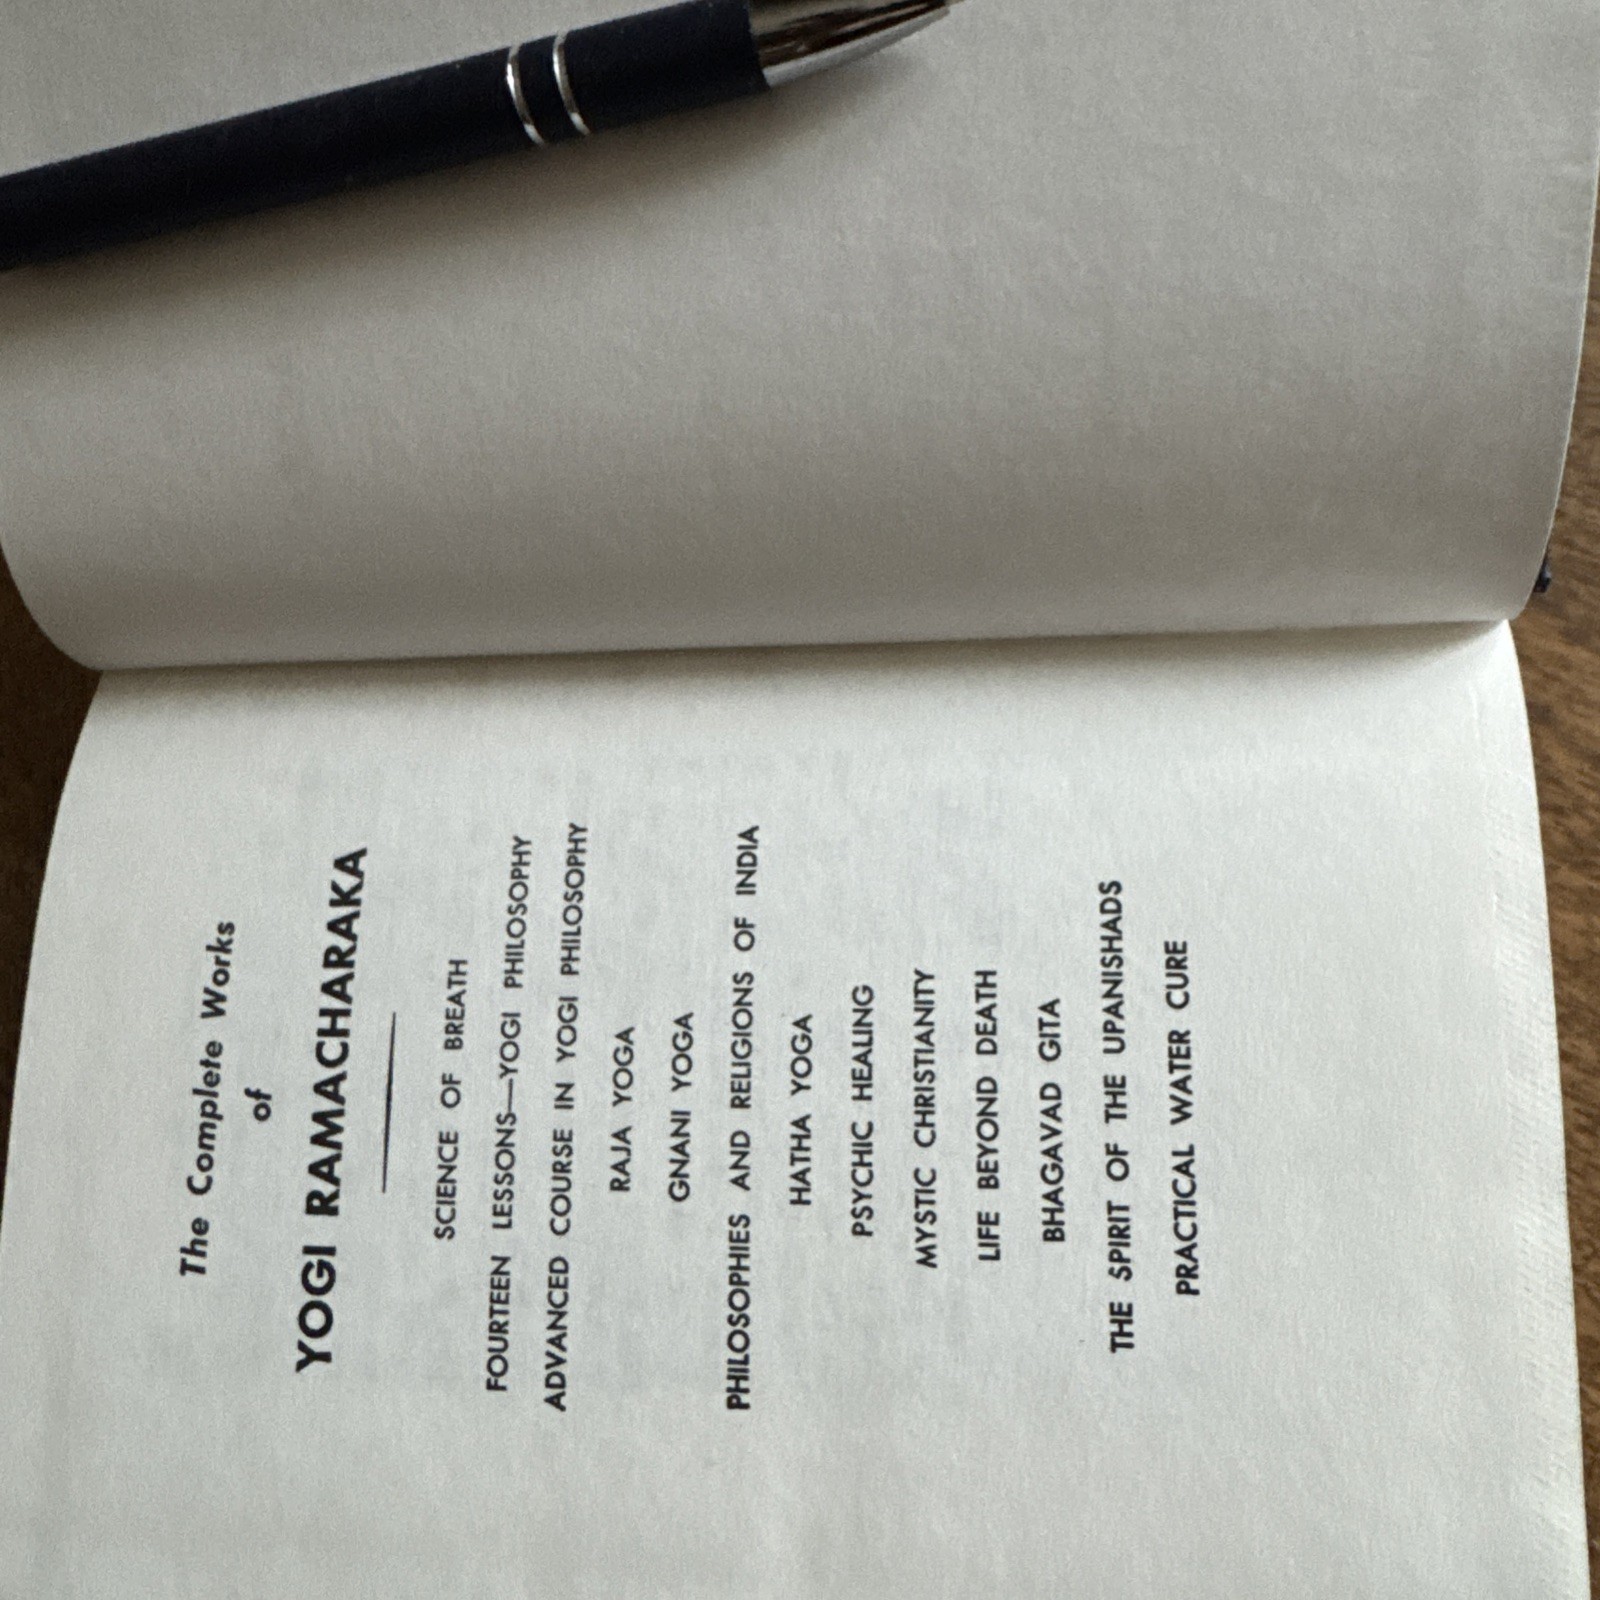 The Complete Works
of
YOGI RAMACHARAKA
SCIENCE OF BREATH
FOURTEEN LESSONS—YOGI PHILOSOPHY
ADVANCED COURSE IN YOGI PHILOSOPHY
RAJA YOGA
GNANI YOGA
PHILOSOPHIES AND RELIGIONS OF INDIA
HATHA YOGA
PSYCHIC HEALING
MYSTIC CHRISTIANITY
LIFE BEYOND DEATH
BHAGAVAD GITA
THE SPIRIT OF THE UPANISHADS
PRACTICAL WATER CURE